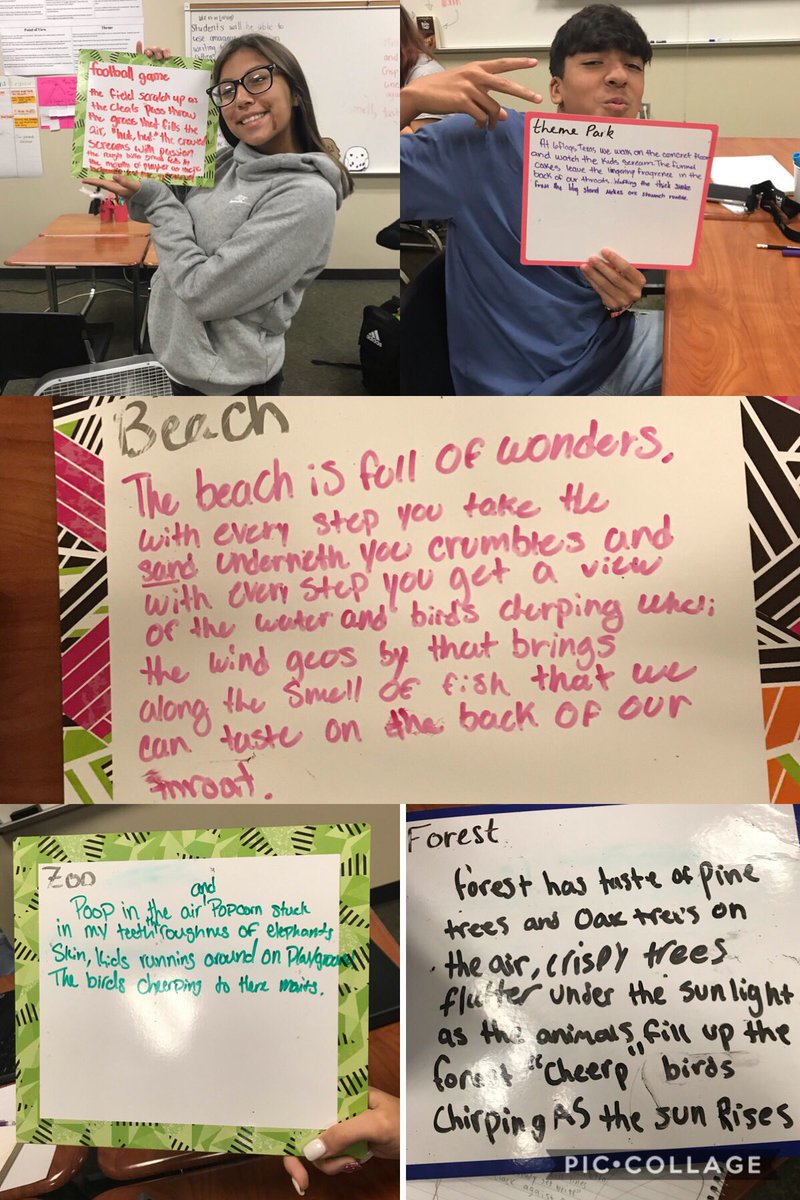 Point of View
Theme
Students will be able to
use
writing
football game
the fidel scratch up as
the cleats pass throw
the grass that fills the
air, "hut, hut" the crowd
screams with passion
theme Park
At 6flags Texas we walk on the concret floor
and watch the kids scream. The funnel
cakes leave the lingering fragrence in the
back of our throats. Wuffing the thick smoke
from the bbq stand makes our stomach rumble.
Beach
The beach is full of wonders.
with every step you take the
sand underneth you crumbles and
with every step you get a view
of the water and birds cherping
the wind goes by that brings
along the smell of fish that we
can taste on the back of our
throat.
Zoo
and
Poop in the air Popcorn stuck
in my teeth roughnes of elephants
Skin, kids running around on Playground
The birds cheerping to there maits.
Forest
forest has taste of pine
trees and Oak trees on
the air, crispy trees
flutter under the sun light
as the animals fill up the
forest "cheerp" birds
chirping AS the sun Rises
PIC•COLLAGE